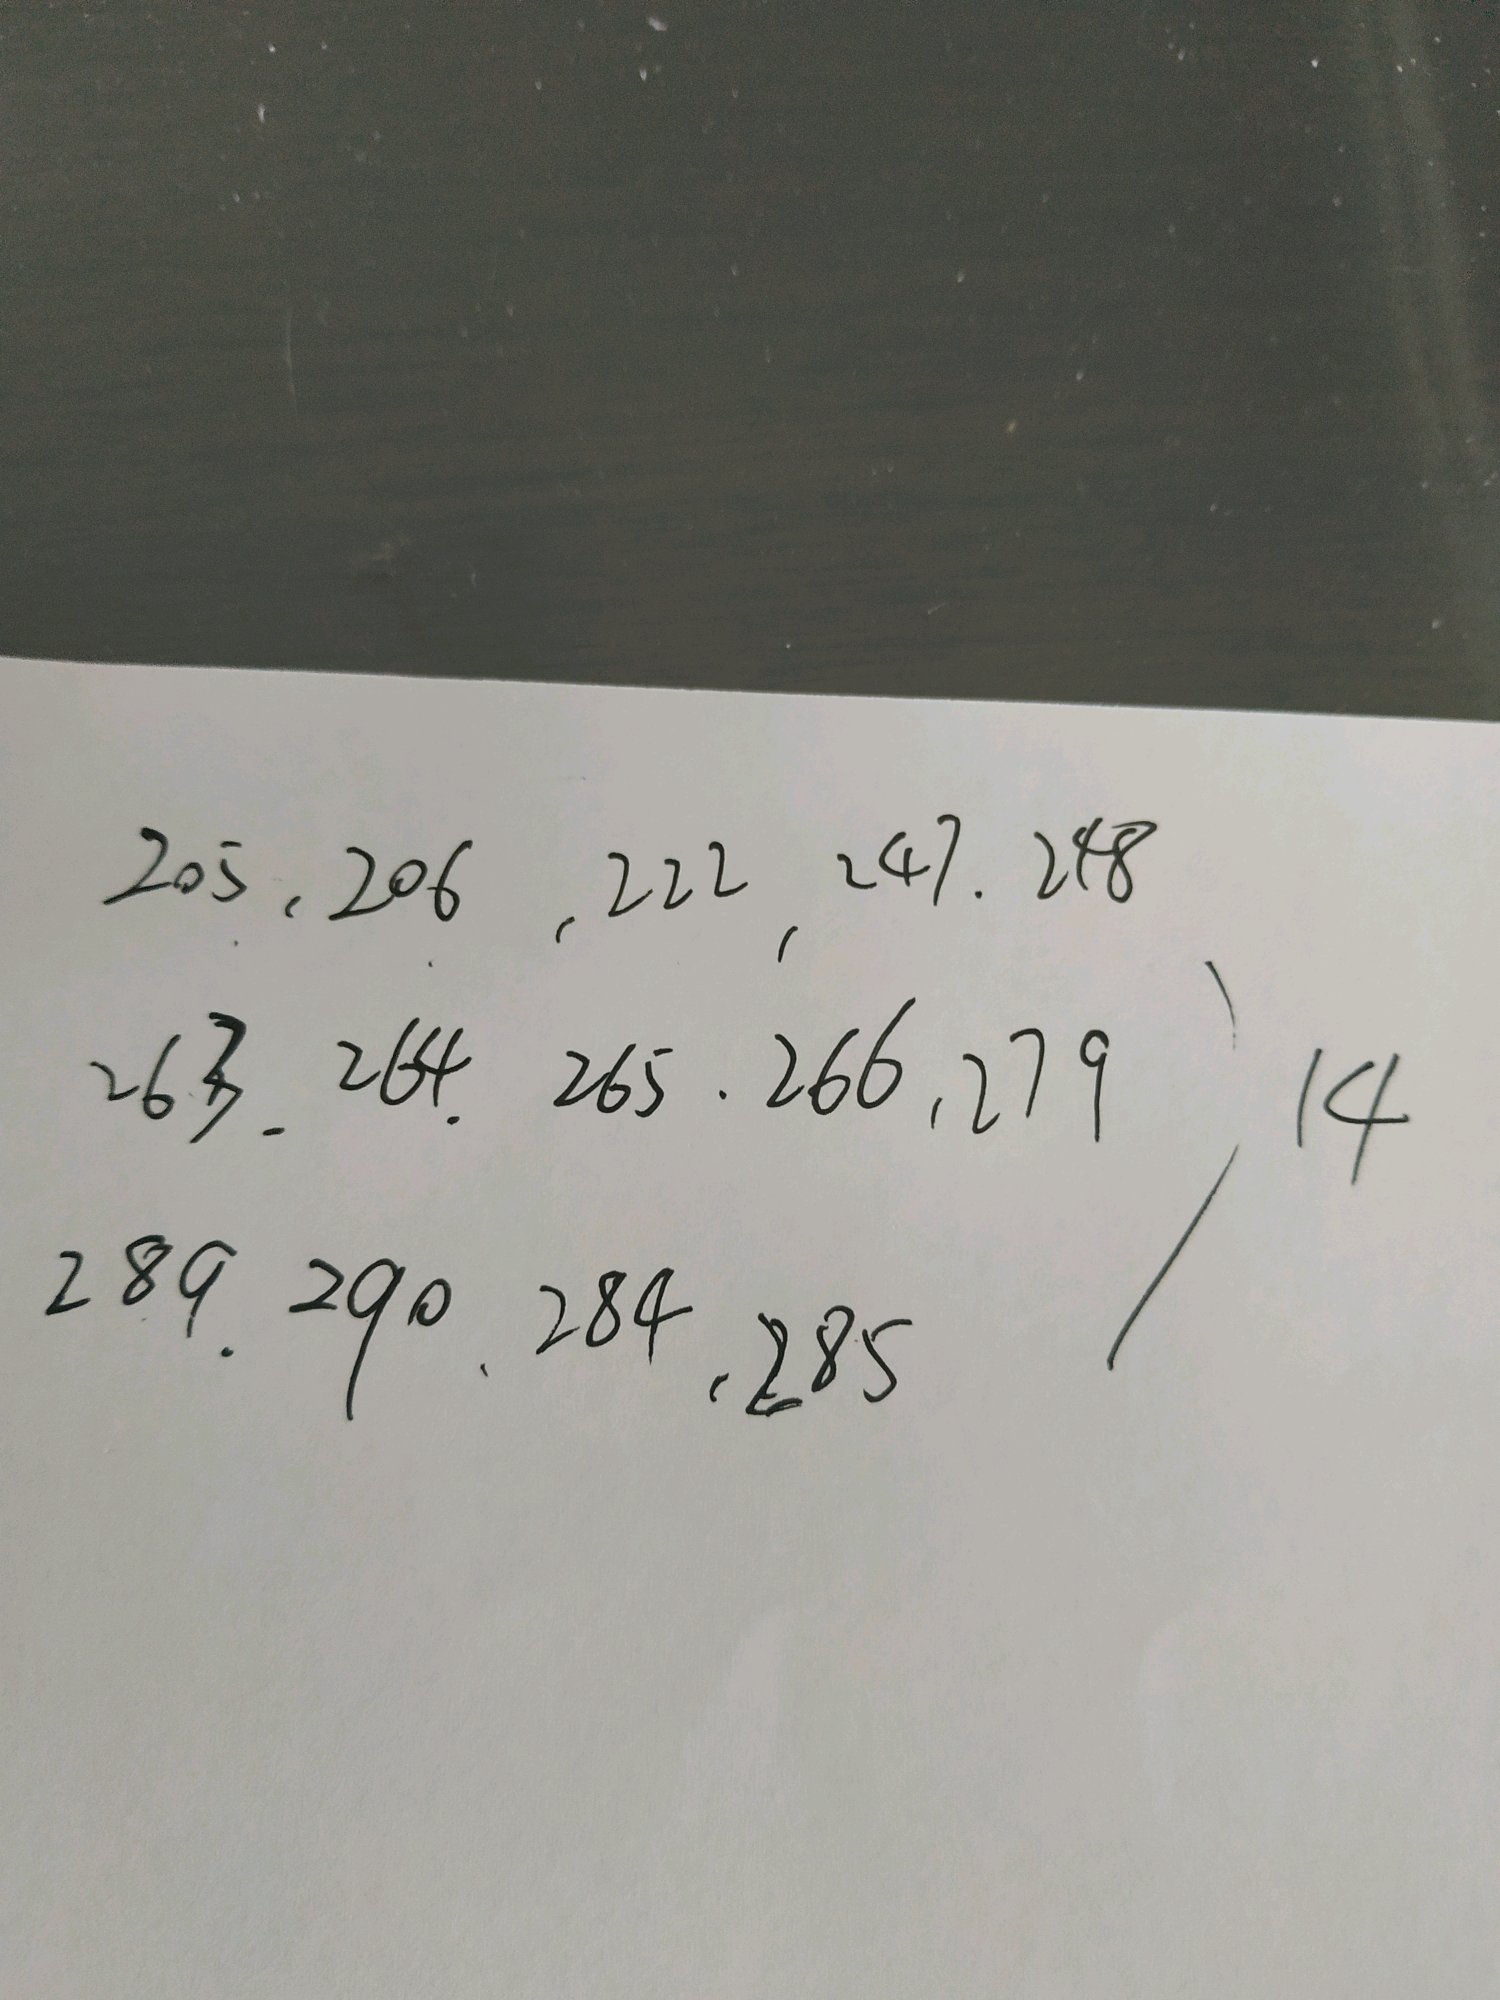 205, 206, 222, 247. 248
263. 264. 265. 266, 279
14
289. 290, 284, 285